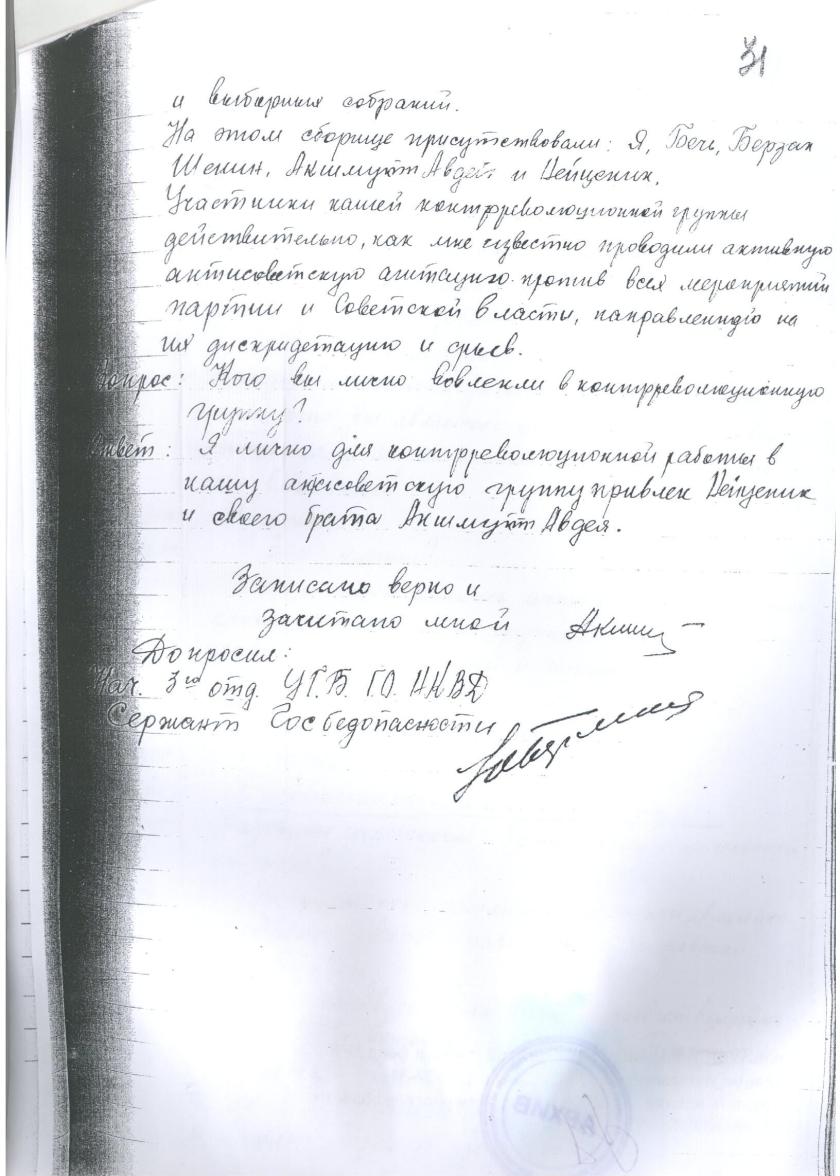 31
и выборных собраний.
На этом сборище присутствовали: Я, Бечь, Берзак
Шенин, Акимужт Авдей и Нейценик.
Участники нашей контрреволюционной группы
действительно, как мне известно проводили активную
антисоветскую агитацию против всех мероприятий
партии и Советской власти, направленную на
их дискридетацию и срыв.
Вопрос: Кого вы лично вовлекли в контрреволюционную
группу?
Ответ: Я лично для контрреволюционной работы в
нашу антисоветскую группу привлек Нейценик
и своего брата Авдея.
Записано верно и
зачитано мной
Допросил:
Нач. 3го отд. УГБ. ГО. НКВД
Сержант Госбедопасности
АРХИВ